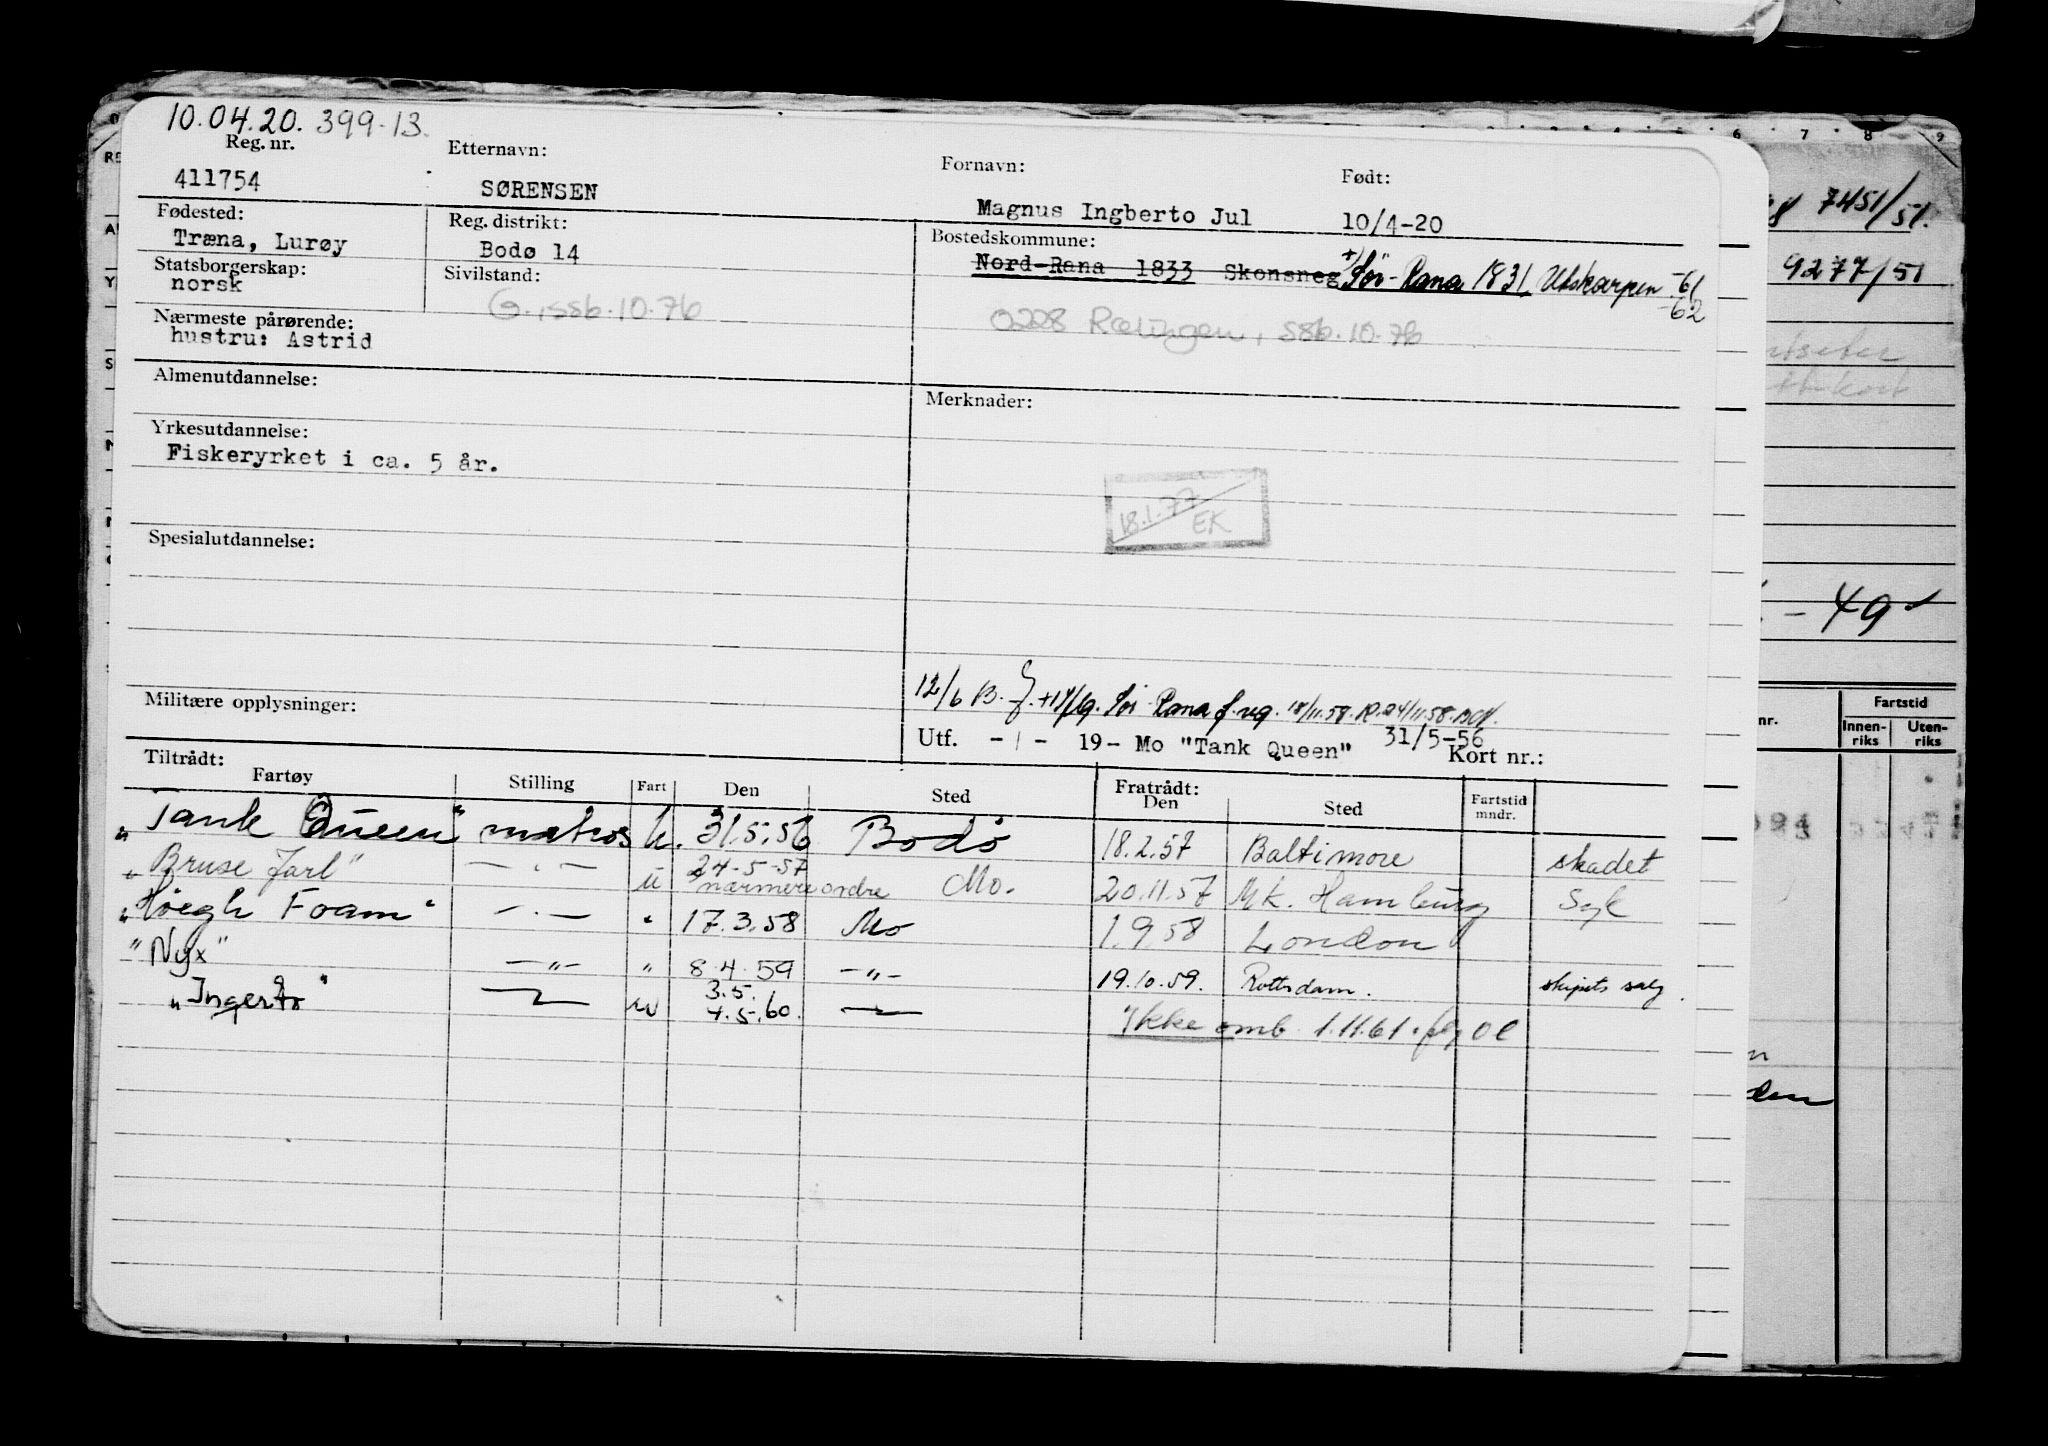 10.04.20. 399-13.
Reg. nr. Etternavn: Fornavn: Født:
411754 SØRENSEN Magnus Ingberto Jul 10/4-20
Fødested: Reg. distrikt: Bostedskommune:
Træna, Lurøy Bodø 14 Nord-Rana 1833 Skonsneg Sør-Rana 1831 Utskarpen -61
-62
Statsborgerskap: Sivilstand:
norsk G. ssb.10.76 0228 Rælingen, ssb.10.76
Nærmeste pårørende:
hustru: Astrid
Almenutdannelse: Merknader:
Yrkesutdannelse:
Fiskeryrket i ca. 5 år.
18.1.77
EK
Spesialutdannelse:
Militære opplysninger:
12/6 B. Sør-Rana f. reg. 18/11.58. 24/11.58.
Utf. -1- 19- Mo "Tank Queen" 31/5-56 Kort nr.:
Tiltrådt: Fratrådt:
Fartøy Stilling Fart Den Sted Den Sted Fartstid mndr.
"Tank Queen" matros u. 31.5.56 Bodø 18.2.57 Baltimore skadet
"Bruse Jarl" — " — u 24-5-57 nærmere ordre Mo. 20.11.57 Mk. Hamburg Syk
"Høegh Foam" — " — " 17.3.58 Mo 1.9.58 London
"Nyx" — " — " 8.4.59 — " — 19.10.59. Rottrdam. skipets salg.
"Ingerto" u 3.5. 4.5.60. Ikke omb. 1.11.61.
6 7 8 9
7451/51.
9277/51
- 49
nr. Fartstid
Innen-riks Uten-riks